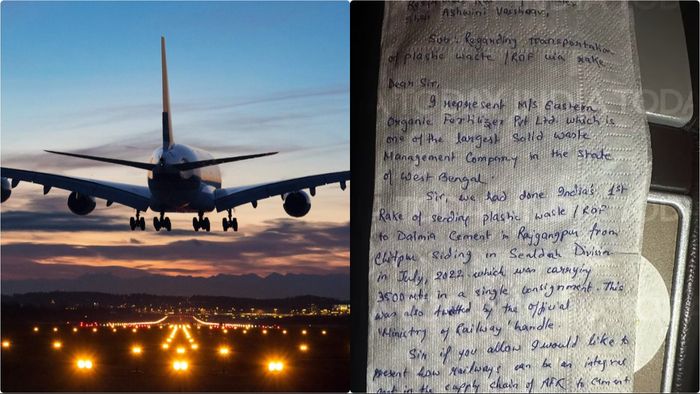 Shri Ashwini Vaishnav,
Sub: Regarding transportation
of plastic waste / RDF via rake
Dear Sir,
I represent M/s Eastern
Organic Fertilizer Pvt Ltd. which is
one of the largest Solid waste
Management Company in the State
of West Bengal.
Sir, we had done India's 1st
Rake of sending plastic waste / RDF
to Dalmia Cement in Rajgangpur from
Chitpur Siding in Sealdah Division
in July, 2022 which was carrying
3500 Mts in a single consignment. This
was also tweeted by the official
'Ministry of Railway' handle.
Sir if you allow I would like to
present how railways can be an integral
part in the supply chain of AFR to Cement
INDIA TODAY